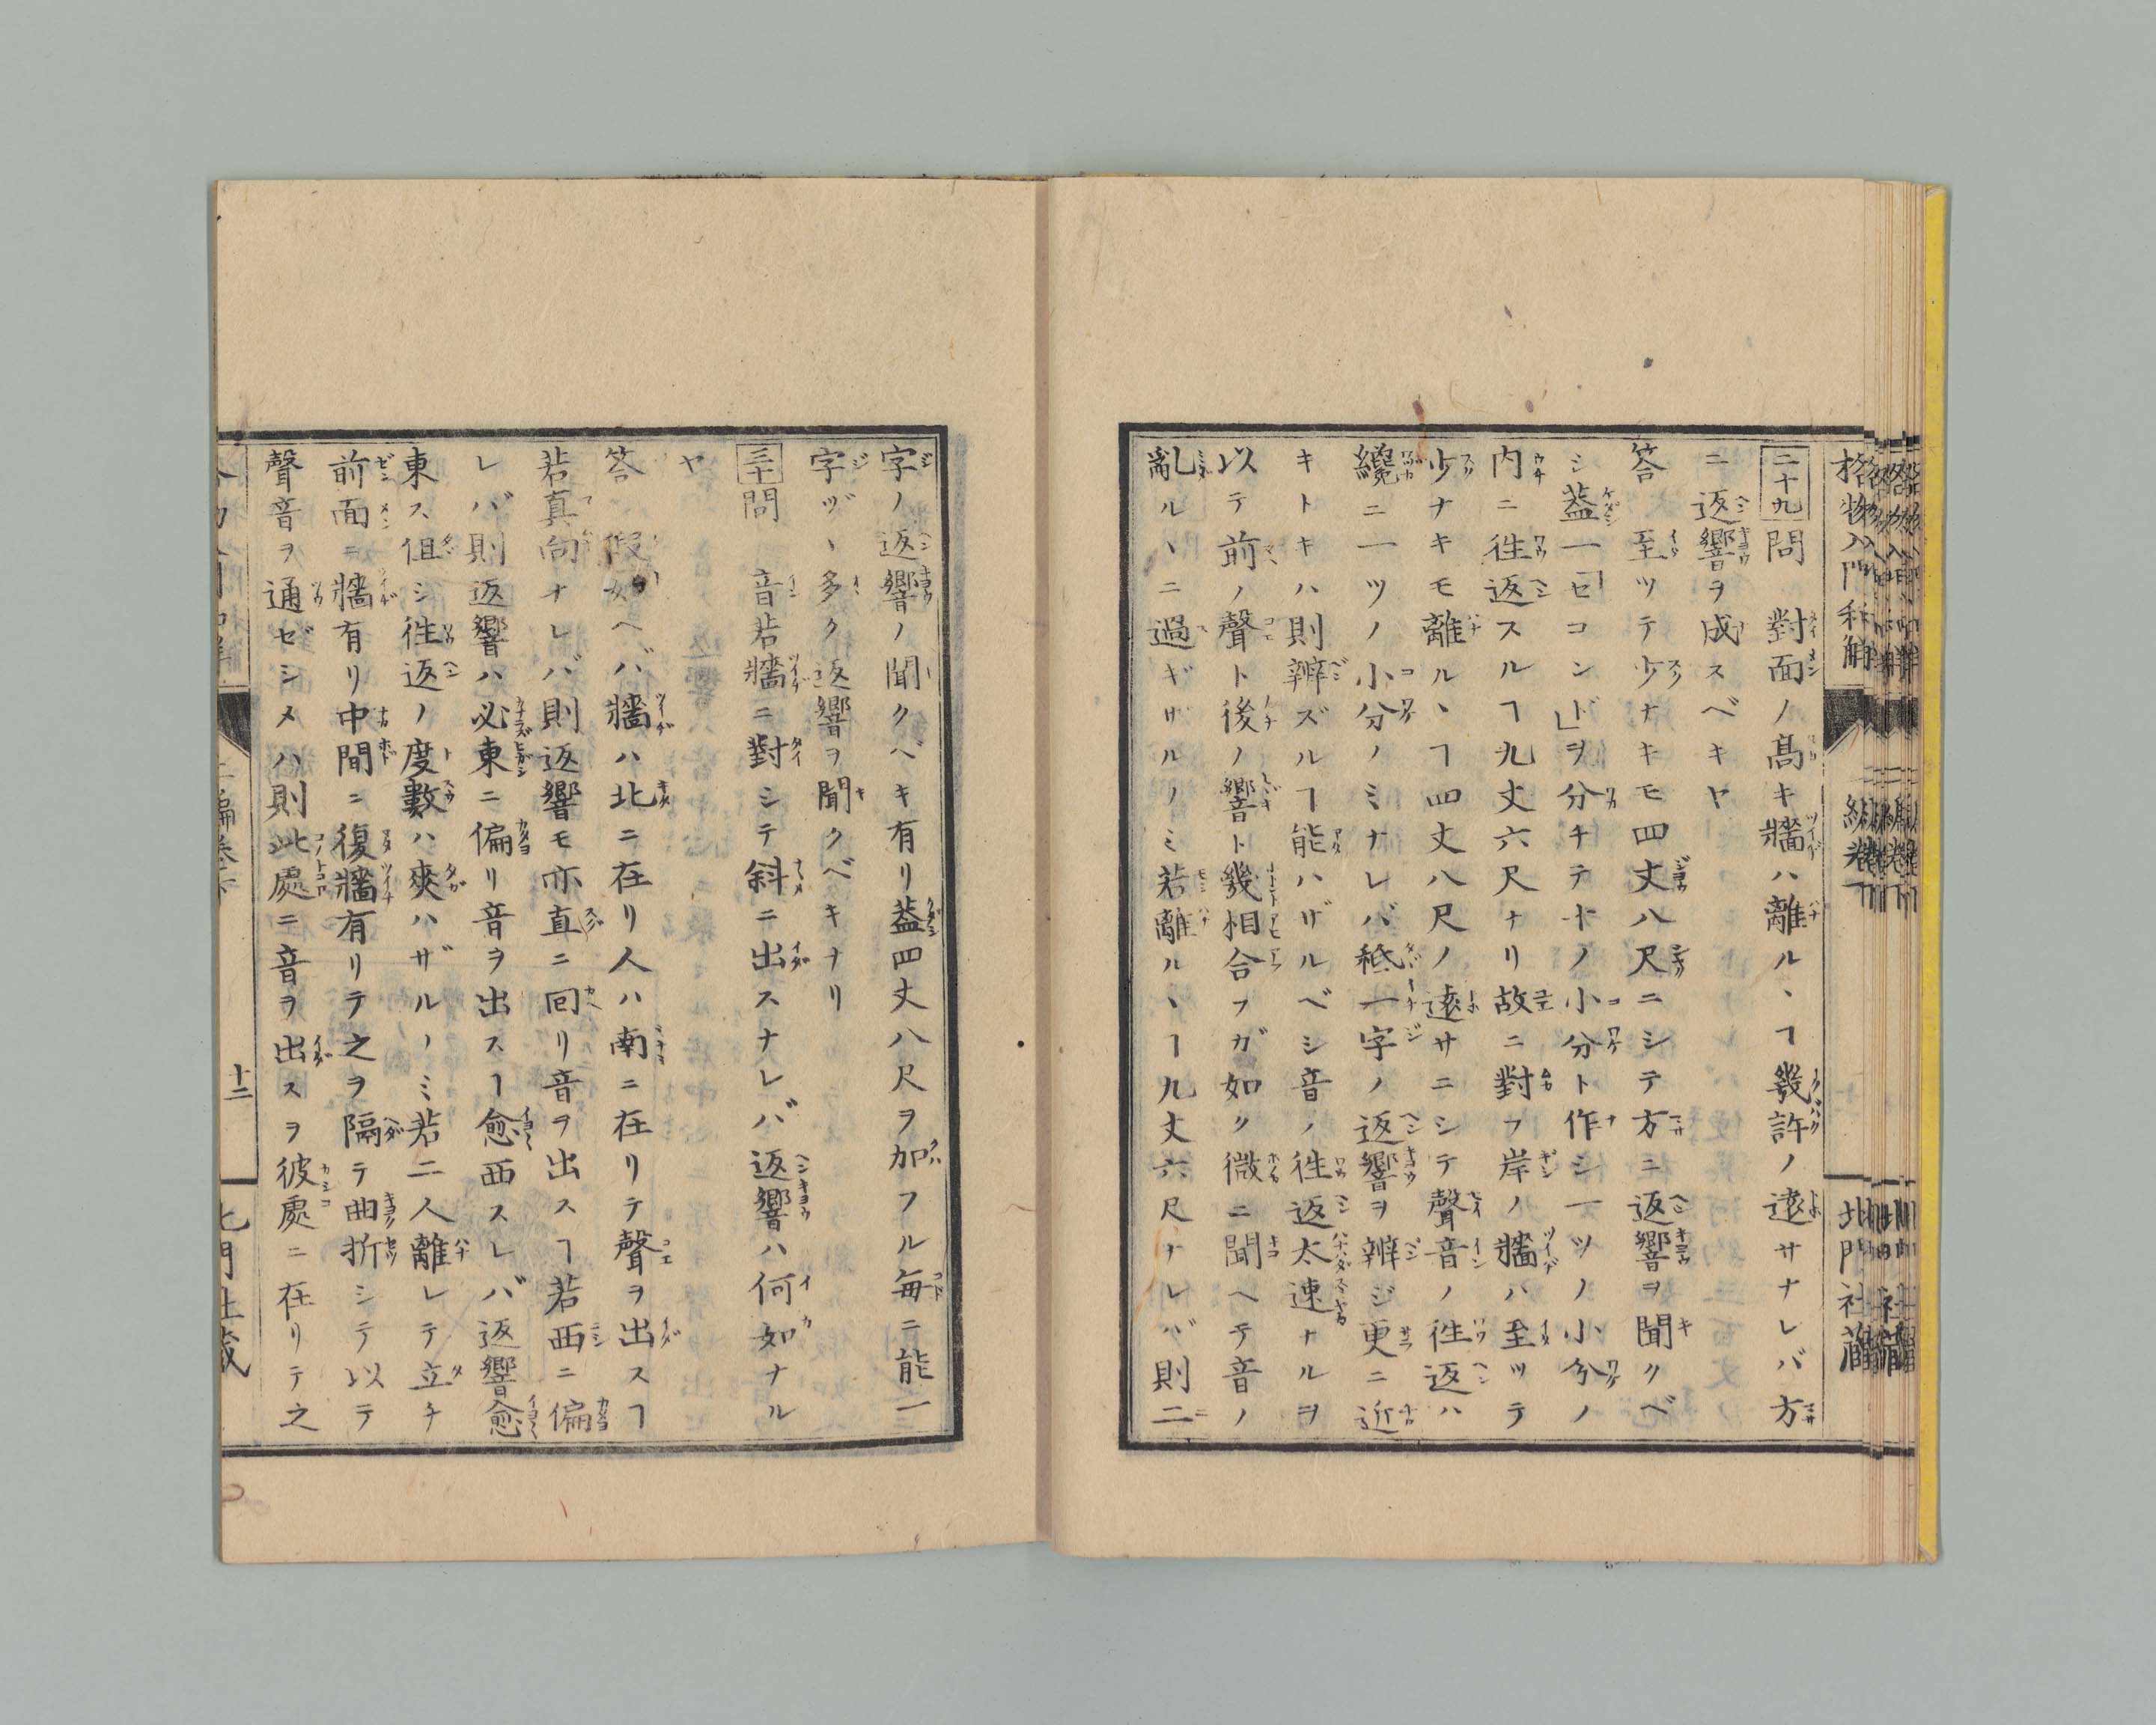 格物入門和解
北門社藏
二十九 問 對面ノ髙キ牆ハ離ルヽヿ幾許ノ遠サナレバ方
ニ返響ヲ成スベキヤ
答 至ツテ少ナキモ四丈八尺ニシテ方ニ返響ヲ聞クベ
シ葢一「セコンド」ヲ分チテ十ノ小分ト作シ一ツノ小分ノ
内ニ徃返スルヿ九丈六尺ナリ故ニ對フ岸ノ牆ハ至ツテ
少ナキモ離ルヽヿ四丈八尺ノ遠サニシテ聲音ノ徃返ハ
纔ニ一ツノ小分ノミナレバ秪一字ノ返響ヲ辨ジ更ニ近
キトキハ則辨ズルヿ能ハザルベシ音ノ徃返太速ナルヲ
以テ前ノ聲ト後ノ響ト幾相合フガ如ク微ニ聞ヘテ音ノ
亂ルヽニ過ギザルノミ若離ルヽヿ九丈六尺ナレバ則二
字ノ返響ノ聞クベキ有リ葢四丈八尺ヲ加フル毎ニ能一
字ヅヽ多ク返響ヲ聞クベキナリ
三十 問 音若牆ニ對シテ斜ニ出スナレバ返響ハ何如ナル
ヤ
答 假如ヘバ牆ハ北ニ在リ人ハ南ニ在リテ聲ヲ出スヿ
若真向ナレバ則返響モ亦直ニ囘リ音ヲ出スヿ若西ニ偏
レバ則返響ハ必東ニ偏リ音ヲ出スヿ愈西スレバ返響愈
東ス但シ徃返ノ度數ハ爽ハザルノミ若二人離レテ立チ
前面ニ牆有リ中間ニ復牆有リテ之ヲ隔テ曲折シテ以テ
聲音ヲ通ゼシメハ則此處ニ音ヲ出スヲ彼處ニ在リテ之
十二
北門社藏